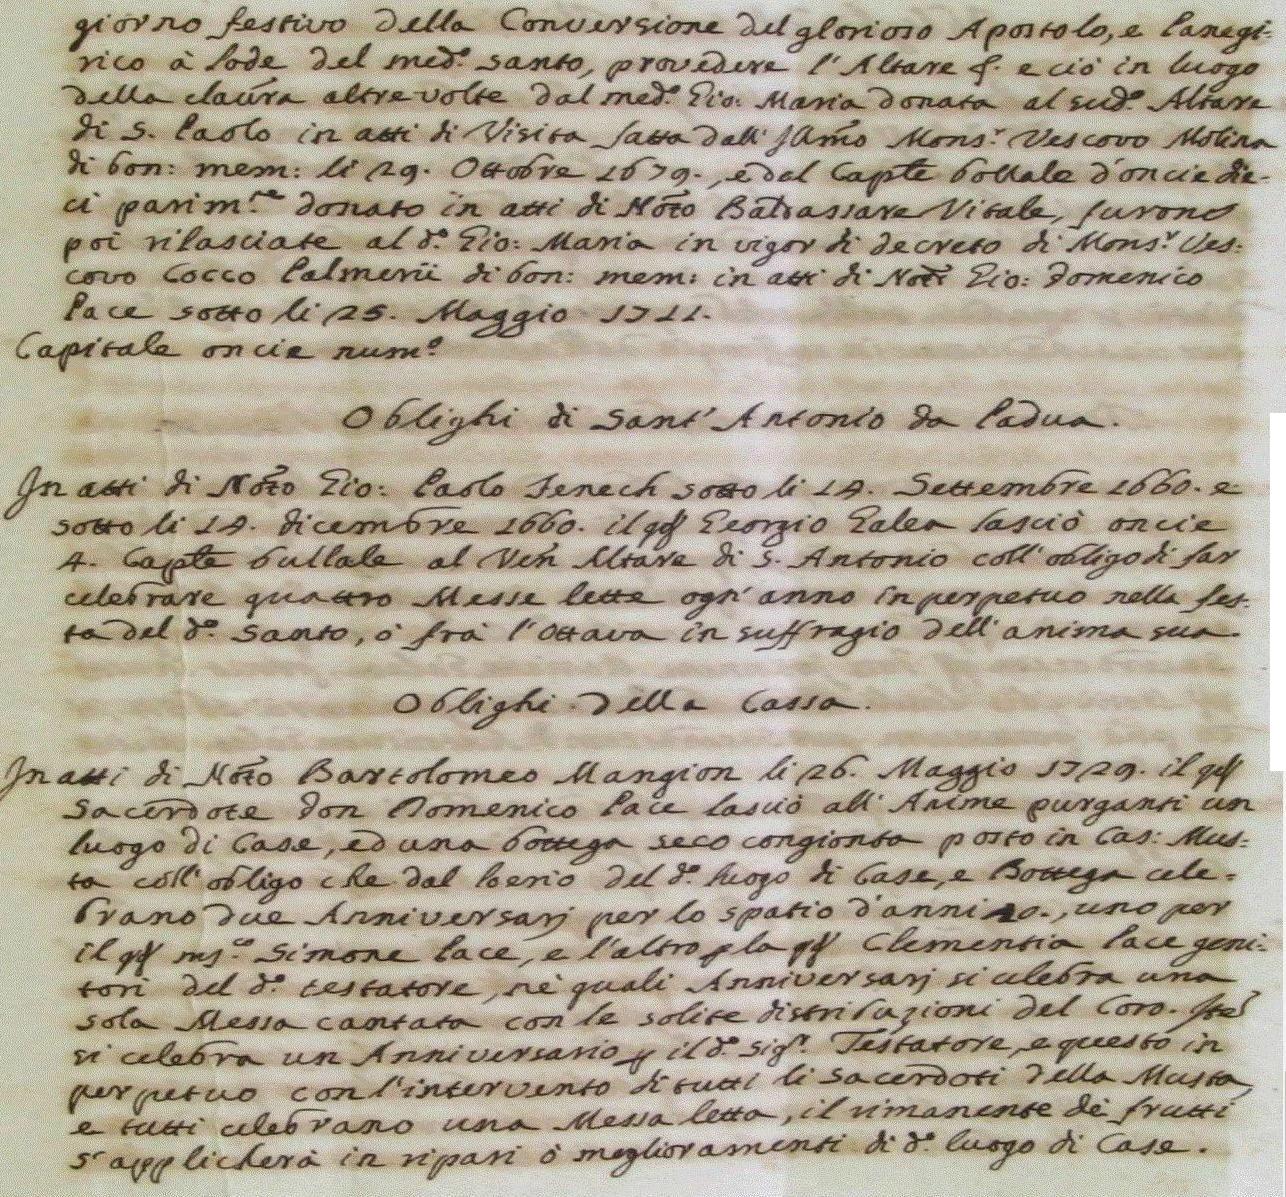 giorno festivo della Conversione del glorioso Apostolo, e Panegi-
rico à lode del med.º santo, provedere l'Altare &. e ciò in luogo
della claũra altre volte dal med.º Gio: Maria donata al sud.º Altare
di S. Paolo in atti di Visita fatta dall' Illmo Mons.r Vescovo Molina
di bon: mem: li 29. Ottobre 1679., e del Capt̃le bollale d'oncie die-
ci parim.te donato in atti di Not̃o Baldassare Vitale, furono
poi rilasciate al d.º Gio: Maria in vigor di decreto di Mons.r Ves:
covo Cocco Palmerii di bon: mem: in atti di Not̃r Gio: Domenico
Pace sotto li 25. Maggio 1711.
Capitale oncie num.º
Oblighi di Sant' Antonio da Padua.
In atti di Not̃o Gio: Paolo Fenech sotto li 14. Settembre 1660. e
sotto li 14. dicembre 1660. il qd̃ Georgio Galea lasciò oncie
4. Capt̃le bullale al Veñ Altare di S. Antonio coll' obligo di far
celebrare quattro Messe lette ogn' anno in perpetuo nella fes:
ta del d.º Santo, ò frà l'Ottava in suffragio dell' anima sua.
Oblighi della Cassa.
In atti di Not̃o Bartolomeo Mangion li 26. Maggio 1729. il qd̃
Sacerdote Don Domenico Pace lasciò all' Anime purganti un
luogo di Case, ed una bottega seco congionta posto in Cas: Mus:
ta coll' obligo che dal loerio del d.º luogo di Case, e Bottega cele-
brano due Anniversarj per lo spatio d'anni 20., uno per
il qd̃ ms.co Simone Pace, e l'altro p la qd̃ Clementia Pace geni-
tori del d.º testatore, nè quali Anniversarj si celebra una
sola Messa cantata con le solite distribuzioni del Coro. Itẽ
si celebra un Anniversario p il d.º sig.r Testatore, e questo in
perpetuo con l'intervento di tutti li Sacerdoti della Musta,
e tutti celebrano una Messa letta, il rimanente dè frutti
s' applicherà in ripari ò megliorameñti di d.º luogo di Case.